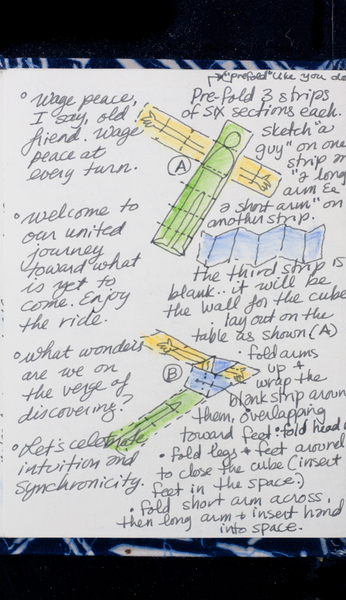 ° Wage peace,
I say, old
friend. Wage
peace at
every turn.
° Welcome to
our united
journey
toward what
is yet to
come. Enjoy
the ride.
° What wonders
are we on
the verge of
discovering?
° Let's celebrate
intuition and
synchronicity.
"prefold" like you do
Pre-fold 3 strips
of six sections each.
sketch "a
guy" on one
strip
"a long
arm &
a short arm" on
another strip.
A
the third strip is
blank.. it will be
the wall for the cube
lay out on the
table as shown (A)
B
• fold arms
up +
wrap the
blank strip around
them, overlapping
toward feet • fold head
• Fold legs + feet around
to close the cube (insert
feet in the space.)
• fold short arm across,
then long arm + insert hand
into space.